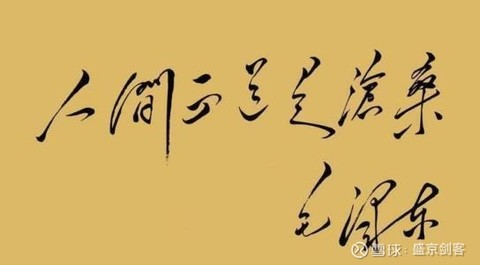 人间正道是滄桑
毛澤东
雪球：盛京剑客